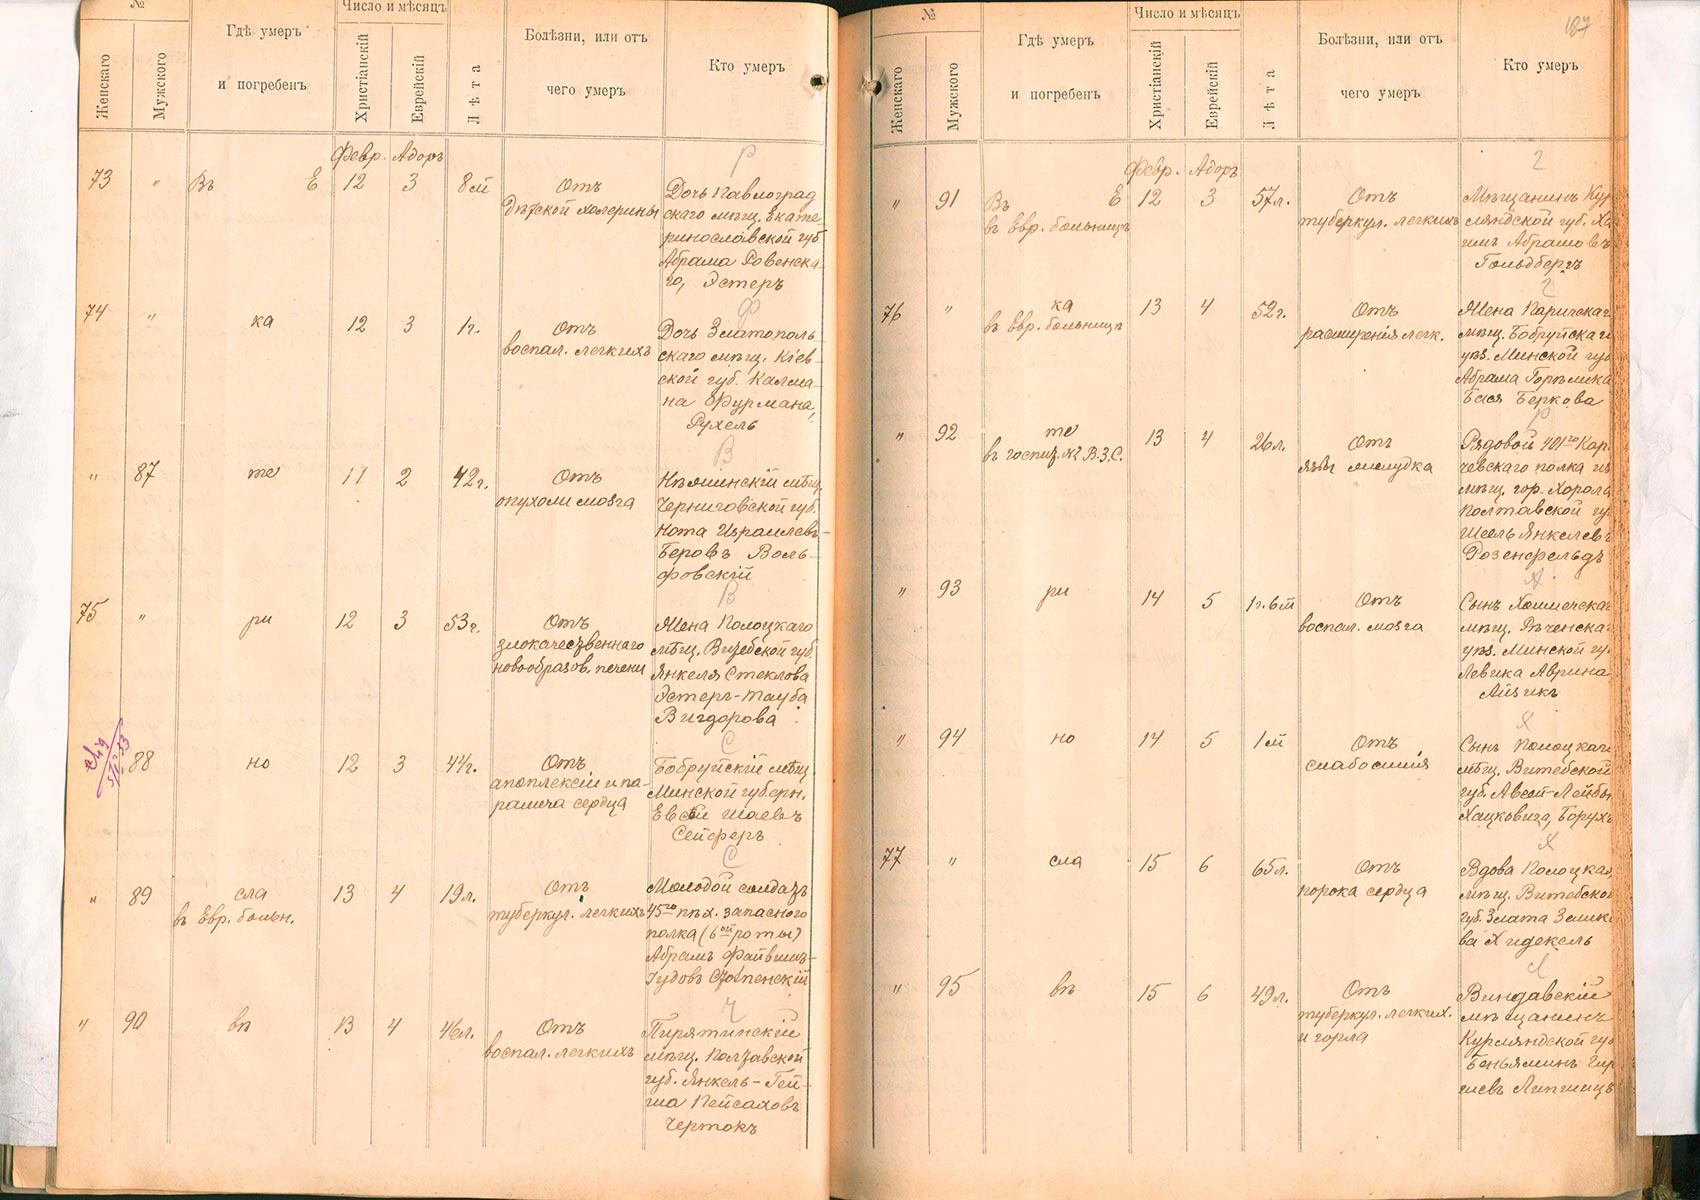 №
Женскаго
Мужского
Гдѣ умеръ
и погребенъ
Число и мѣсяцъ
Христіанскій
Еврейскій
Лѣта
Болѣзни, или отъ
чего умеръ
Кто умеръ
Февр. Адоръ
Р
73 " Въ Е 12 3 8 м
Отъ
дѣтской холерины
Дочь Павлоград
скаго мѣщ. Екате
ринославской губ
Абрама Ровенска
го, Эстеръ
Ф
74 " ка 12 3 1 г.
Отъ
воспал. легкихъ
Дочь Златополь
скаго мѣщ. Кіев-
ской губ. Калма-
на Фурмана,
Рухель
В
" 87 те 11 2 42 г.
Отъ
опухоли мозга
мѣщ.
Черниговской губ.
Нота Израилевъ-
Беровъ Воль-
фовскій
В
75 " ри 12 3 53 г.
Отъ
злокачественнаго
новообразов. печени
Жена Полоцкаго
мѣщ. Витебской губ.
Янкеля Стеклова
Эстеръ-Тауба
Вигдорова
С
88 но 12 3 44 г.
Отъ
апоплексіи и па-
ралича сердца
Бобруйскій мѣщ.
Минской губерн.
Евсей Шаевъ
Сейферъ
С
" 89 сла 13 4 19 л.
въ Евр. больн.
Отъ
туберкул. легкихъ
Молодой солдатъ
45го пѣх. запасного
полка (6ой роты)
Абрамъ Файвишъ-
Іудовъ
Ч
" 90 въ 13 4 46 л.
Отъ
воспал. легкихъ
Пирятинскій
мѣщ. Полтавской
губ. Янкель-Гей-
ша Пейсаховъ
Чертокъ
187
№
Женскаго
Мужского
Гдѣ умеръ
и погребенъ
Число и мѣсяцъ
Христіанскій
Еврейскій
Лѣта
Болѣзни, или отъ
чего умеръ
Кто умеръ
Февр. Адоръ
Г
" 91 Въ Е 12 3 57 л.
въ Евр. больницѣ
Отъ
туберкул. легкихъ
Мѣщанинъ Кур
ляндской губ. Ха
имъ Абрамовъ
Гольдбергъ
Г
76 " ка 13 4 52 г.
въ Евр. больницѣ
Отъ
расширенія легк.
Жена Паричскаг
мѣщ. Бобруйскаг
уѣз. Минской губ
Абрама Горелика
Бася Беркова
Р
" 92 те 13 4 26 л.
въ госпит. В.З.С.
Отъ
язвы желудка
Рядовой 401го Кар
чевскаго полка из
мѣщ. гор. Хорола
Полтавской гу
Шеель Янкелевъ
Розенфельдъ
А
" 93 ри 14 5 1 г. 6 м
Отъ
воспал. мозга
Сынъ Холмечскаг
мѣщ. Рѣченска
уѣз. Минской гу
Левика Аврина
Айзикъ
Х
" 94 но 14 5 1 м
Отъ
слабосилія
Сынъ Полоцкаг
мѣщ. Витебской
губ. Лейбы
Хацковича, Борухъ
Х
77 " сла 15 6 65 л.
Отъ
порока сердца
Вдова Полоцкая
мѣщ. Витебской
губ. Злата Зелико
ва Хидекель
Л
" 95 въ 15 6 49 л.
Отъ
туберкул. легких.
и горла
Виндавскій
мѣщанинъ
Курляндской губ
Беньяминъ Гир
шевъ Липшицъ